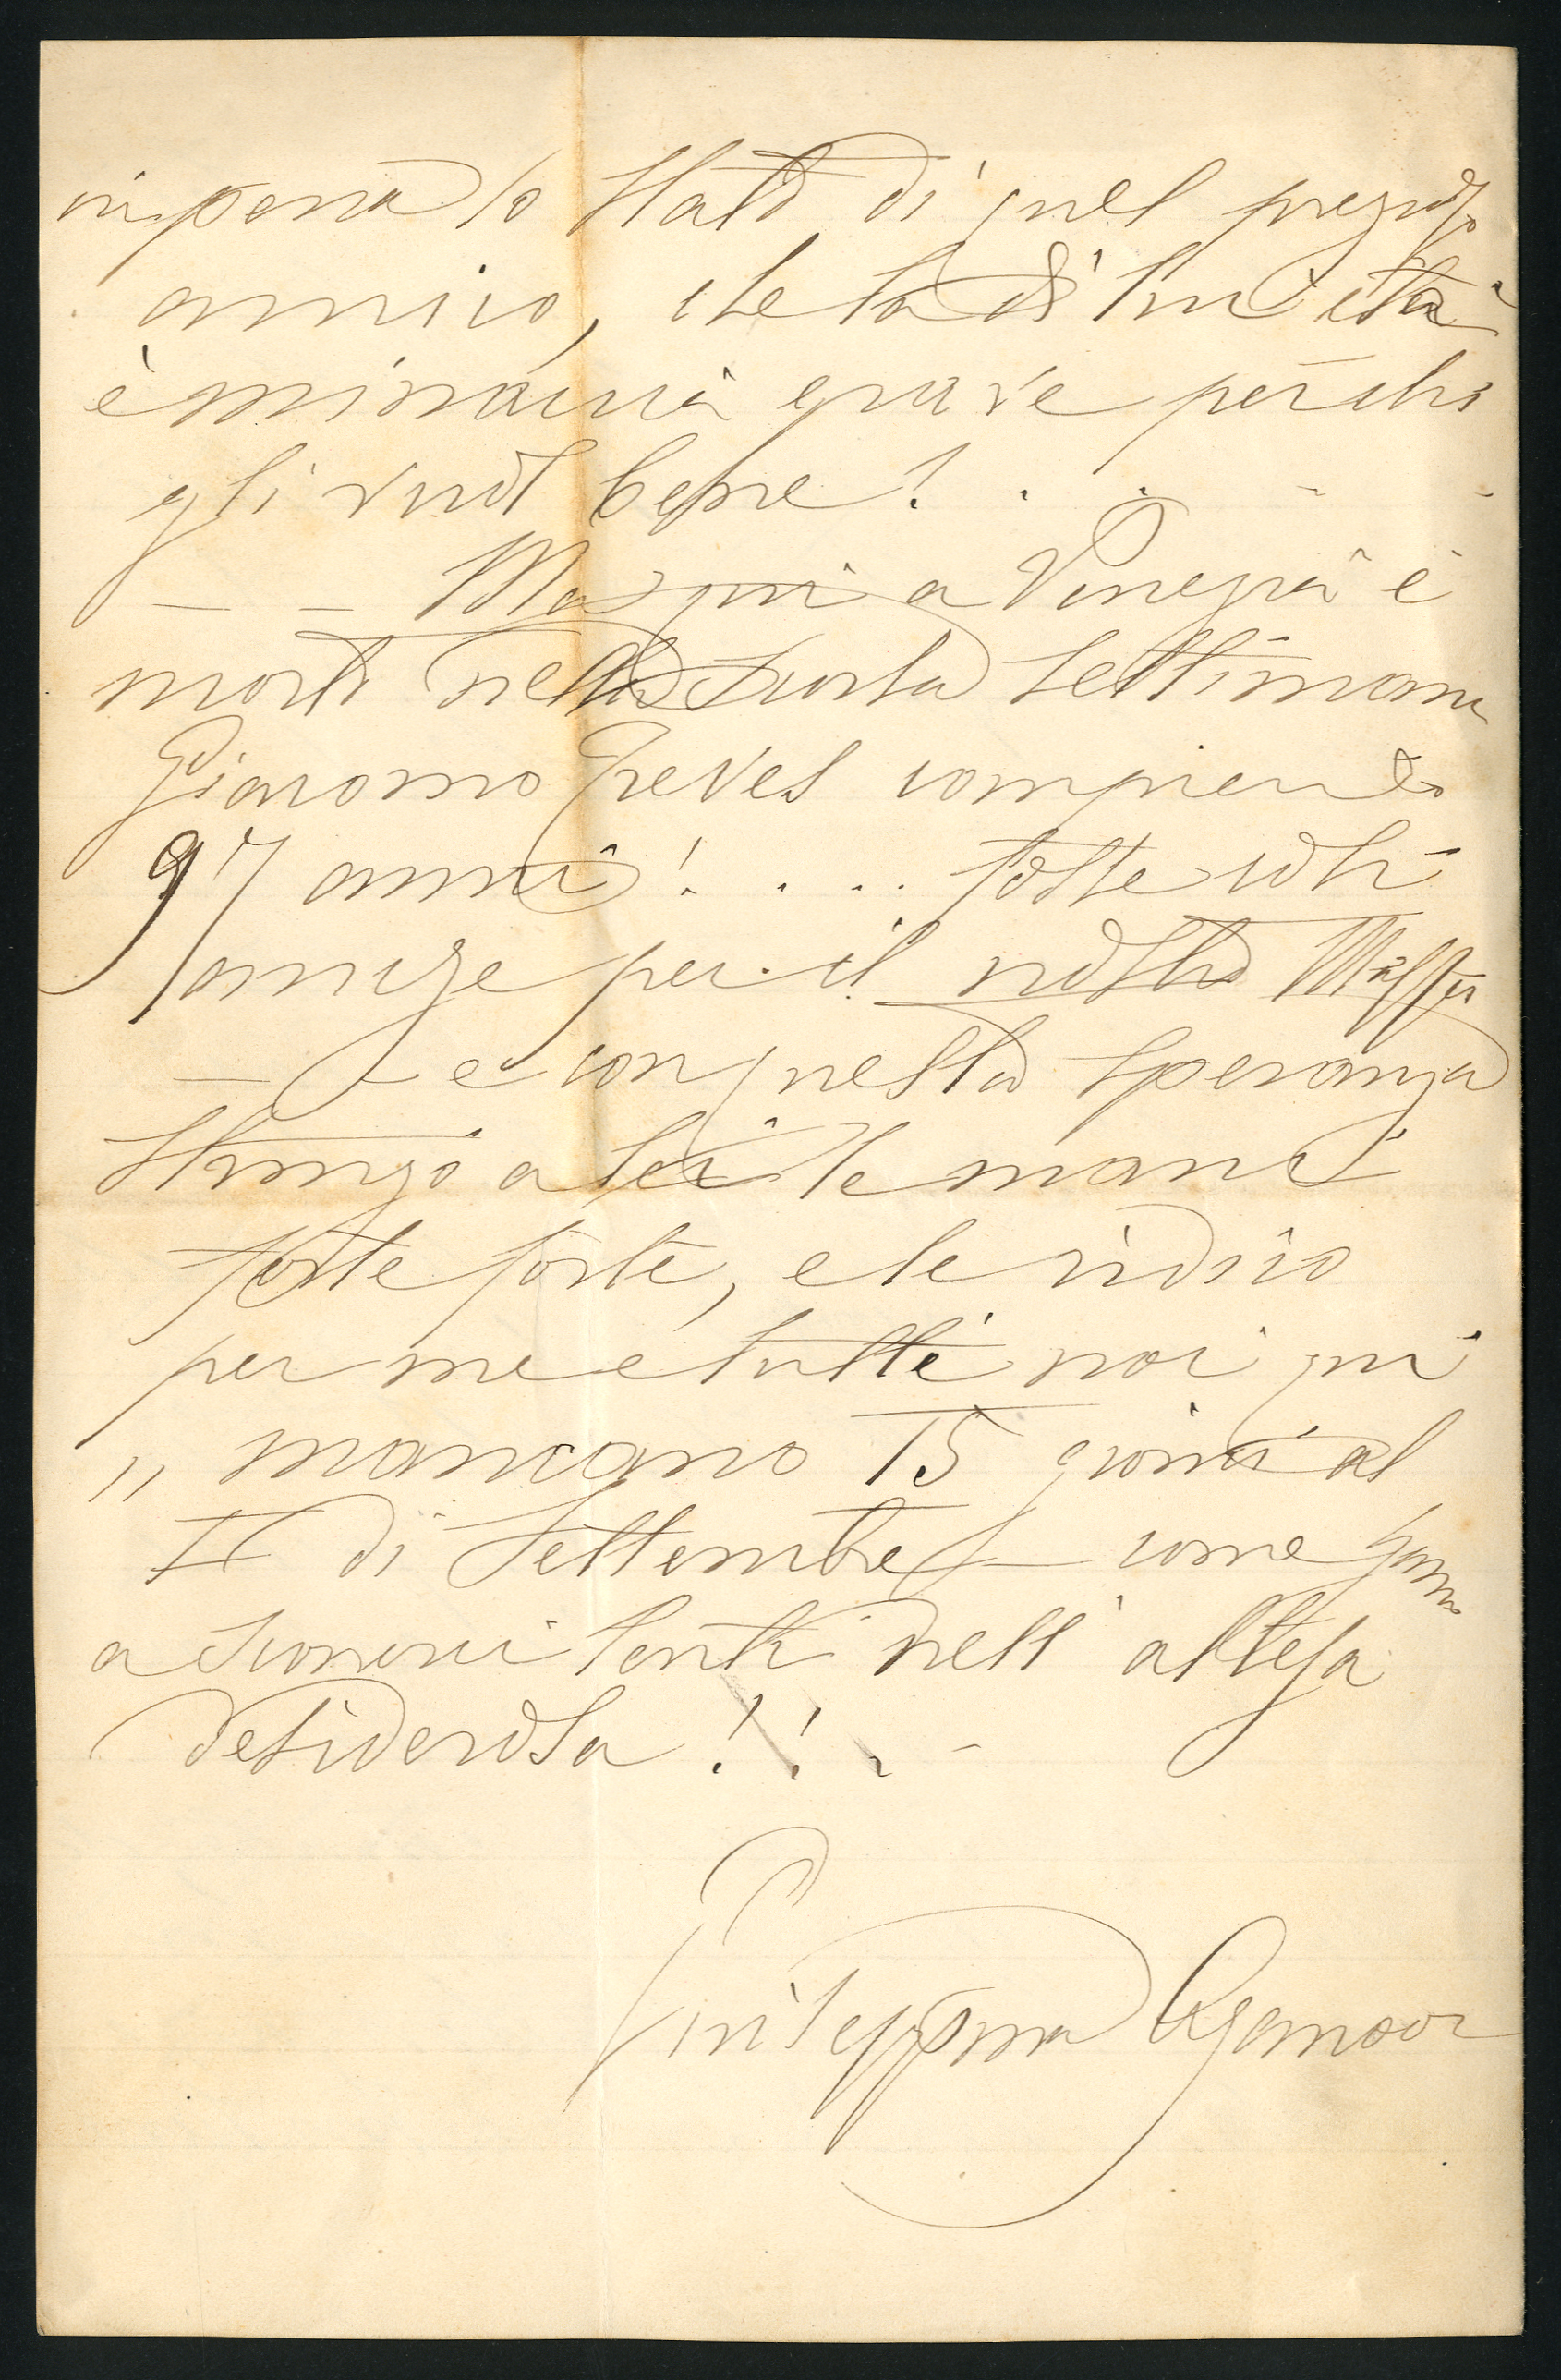 in pena lo stato di quel prezioso
amico, che la di lui età
è minaccia grave per chi
gli vuol bene! . . . .
— — Ma qui a Venezia è
morto nella scorsa settimana
Giacomo Treves compiendo
97 anni! . . . fosse così
anche per il nostro Maffei
— e con questa speranza
stringo a lei le mani
forte forte, e le ridico
per me e tutti noi qui
„ mancano 15 giorni al
II di Settembre — come
a scorrere lenti nell' attesa
desiderosa!! . -
Giuseppina